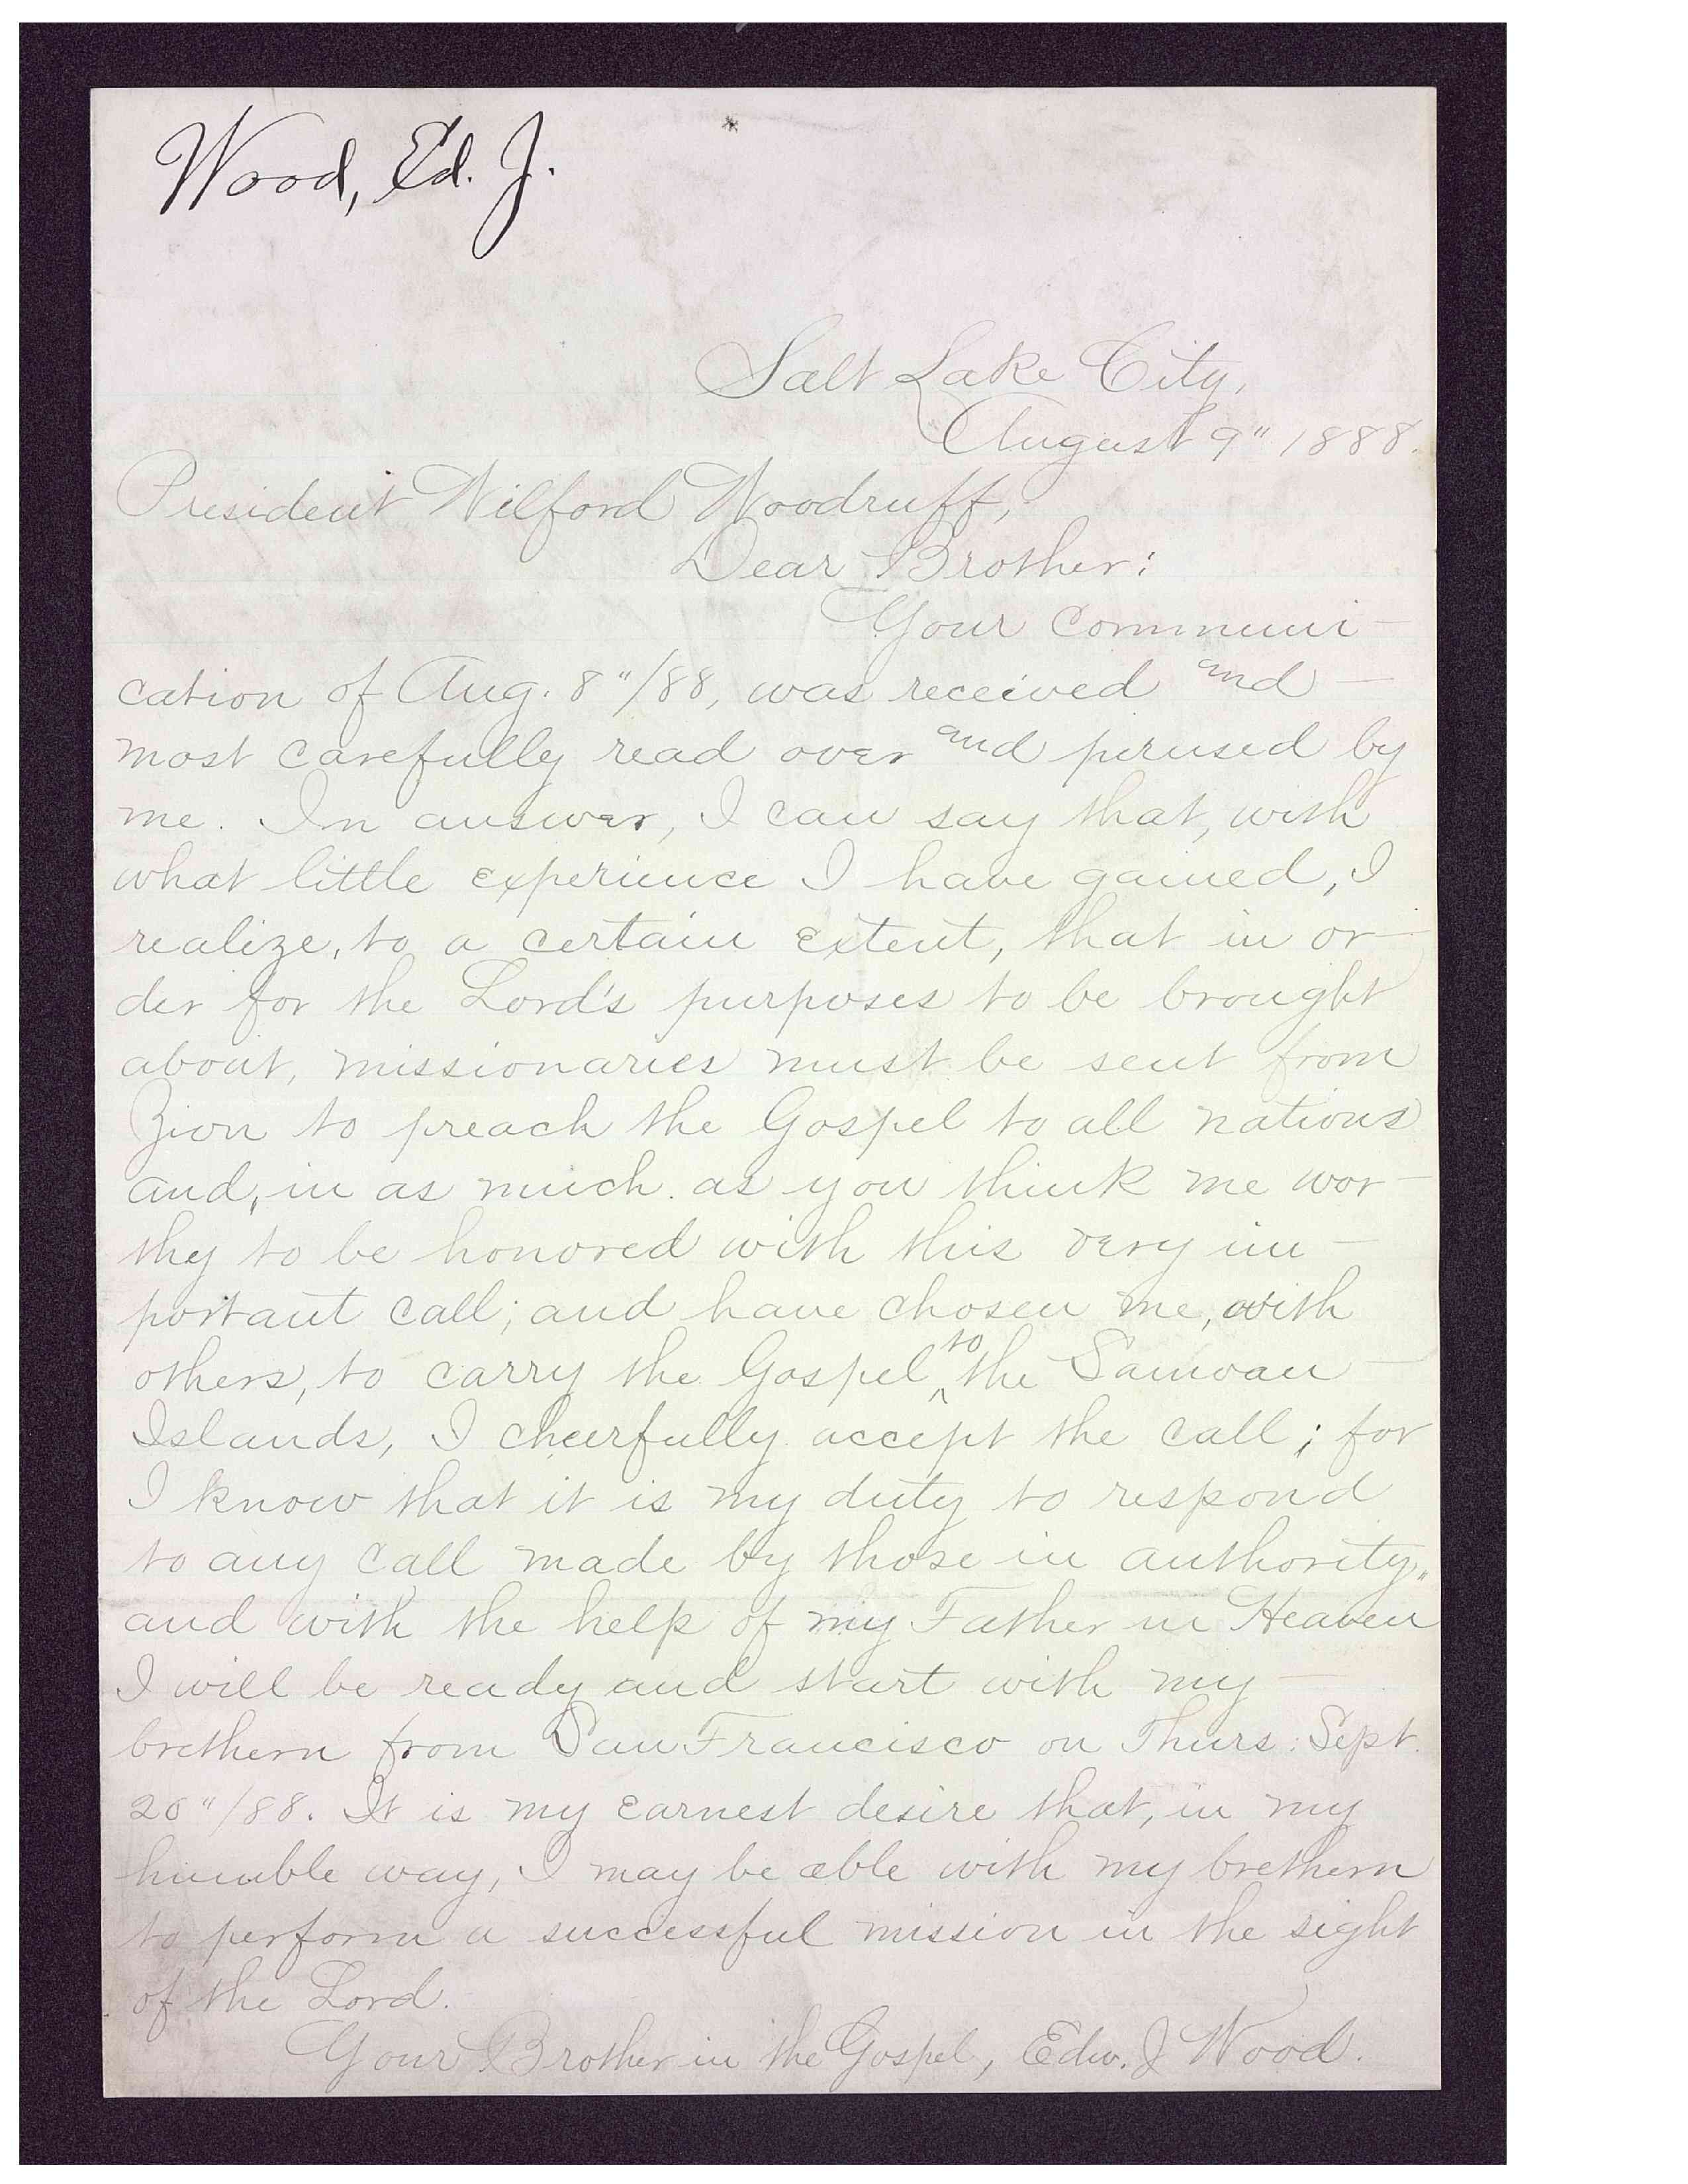 Wood, Ed. J.
Salt Lake City,
August 9" 1888.
President Wilford Woodruff,
Dear Brother:
Your Communi-
cation of Aug. 8"/88, was received and
most carefully read over and perused by
me. In answer, I can say that, with
what little experience I have gained, I
realize, to a certain extent, that in or-
der for the Lord's purposes to be brought
about, missionaries must be sent from
Zion to preach the Gospel to all nations
and, in as much as you think me wor-
thy to be honored with this very im-
portant call; and have chosen me, with
others, to carry the Gospel ^to the Samoan
Islands, I cheerfully accept the call; for
I know that it is my duty to respond
to any call made by those in authority,
and with the help of my Father in Heaven
I will be ready and start with my
brethern from San Francisco on Thurs: Sept.
20"/88. It is my earnest desire that, in my
humble way, I may be able with my brethern
to perform a successful mission in the sight
of the Lord.
Your Brother in the Gospel, Edw. J Wood.